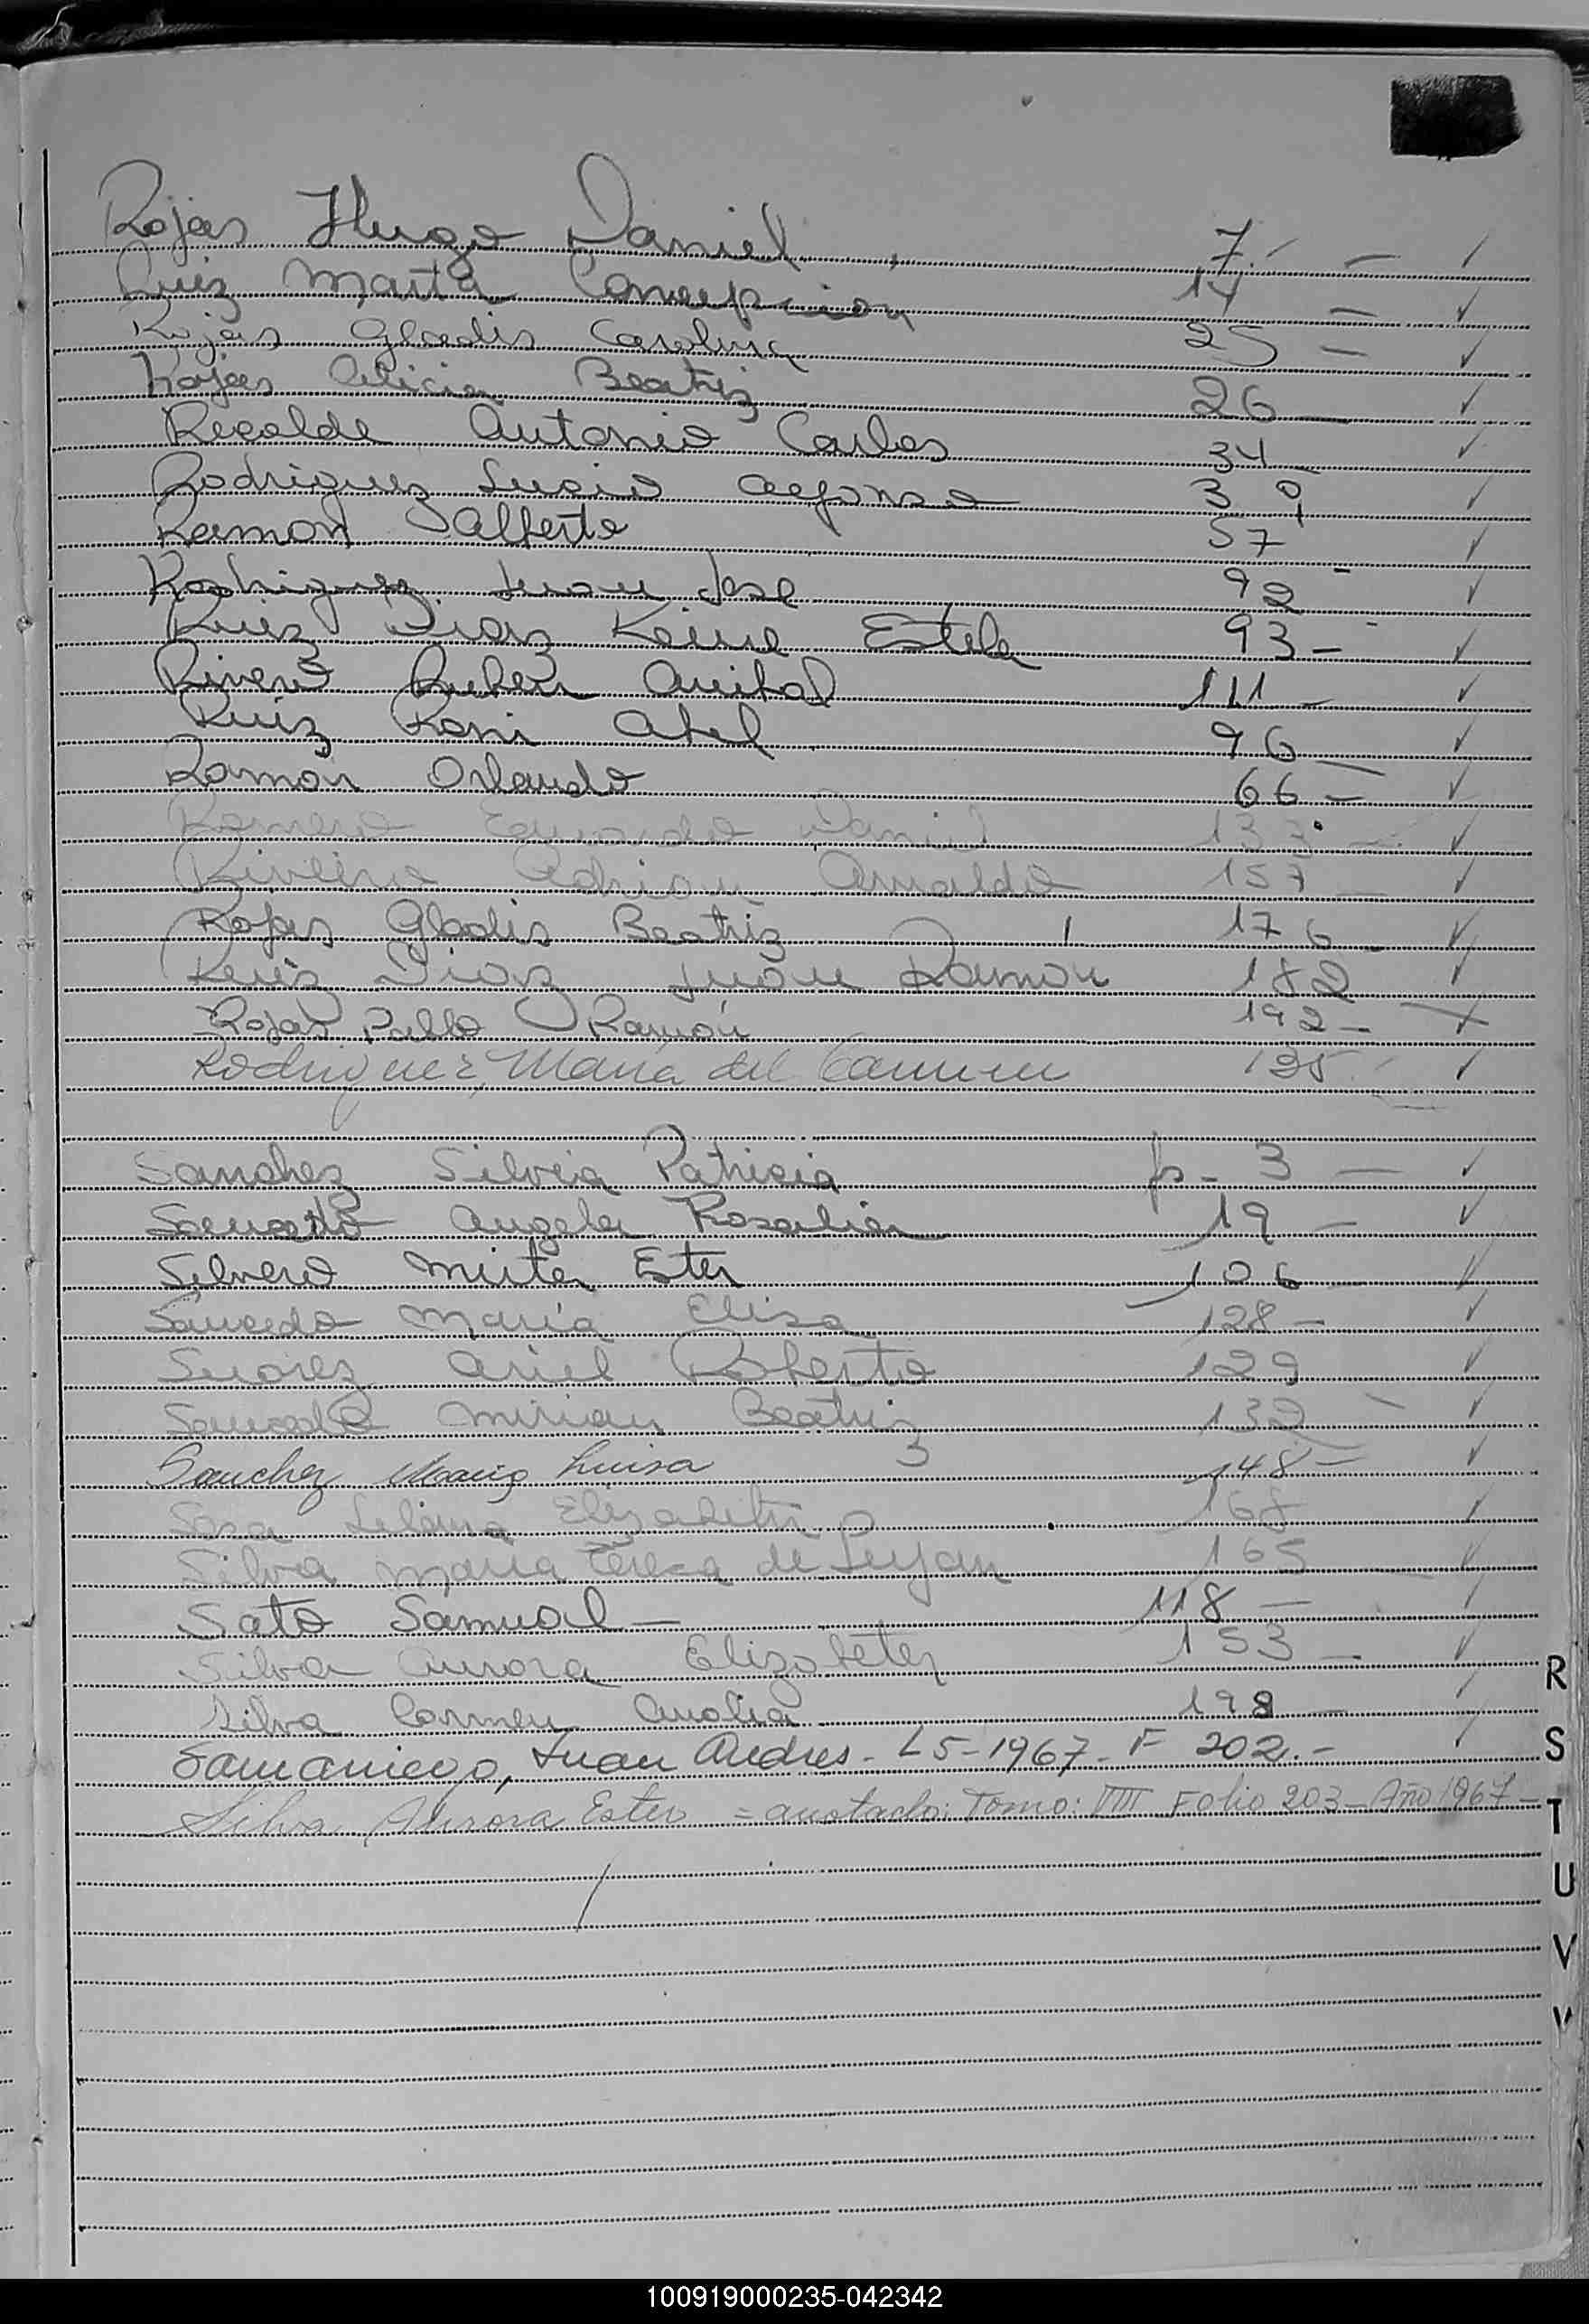 Rojas Hugo Daniel 7. —
Ruiz Marta Concepcion 14 —
Rojas Gladis Carolina 25 —
Rojas Alicia Beatriz 26 —
Recalde Antonio Carlos 34 —
Rodriguez Lucio Alfonso 39
Ramon Alberto 57
Rodriguez Juan Jose 92 -
Ruiz Diaz Estela 93 -
Rivero Ruben Anibal 111 -
Ruiz Roni Abel 96 —
Ramon Orlando 66 —
Romero Daniel 133 —
Adrian Arnaldo 157 —
Rojas Gladis Beatriz 176 -
Ruiz Diaz Juan Ramon 182
Rojas Pablo Ramón 192 -
Rodriguez, Maria del Carmen 195
Sanchez Silvia Patricia fs - 3 —
Saucedo Angela Rosalia 19 —
Silvero Mirta Ester 106 —
Saucedo Maria Elisa 128 —
Suarez Ariel Roberto 129
Saucedo Mirian Beatriz 132 -
Sanchez Maria Luisa 148 —
Sosa Liliana Elizabeth
Silva Maria Teresa de Lujan 165 —
Sato Samuel — 118 —
Silva Aurora Elizabeter 153 —
Silva Carmen Analia 198 —
Samaniego, Juan Andres - L 5-1967 - F 202. -
Silva Aurora Ester = anotado: Tomo: Folio 203 - Año 1967 -
R
S
T
U
V
100919000235-042342